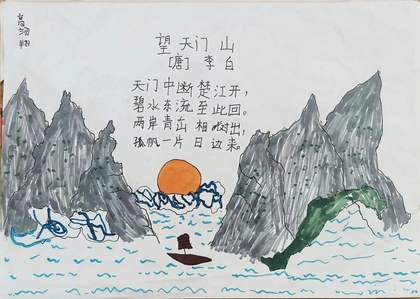 望天门山
[唐]李白
天门中断楚江开，
碧水东流至此回。
两岸青山相对出，
孤帆一片日边来。